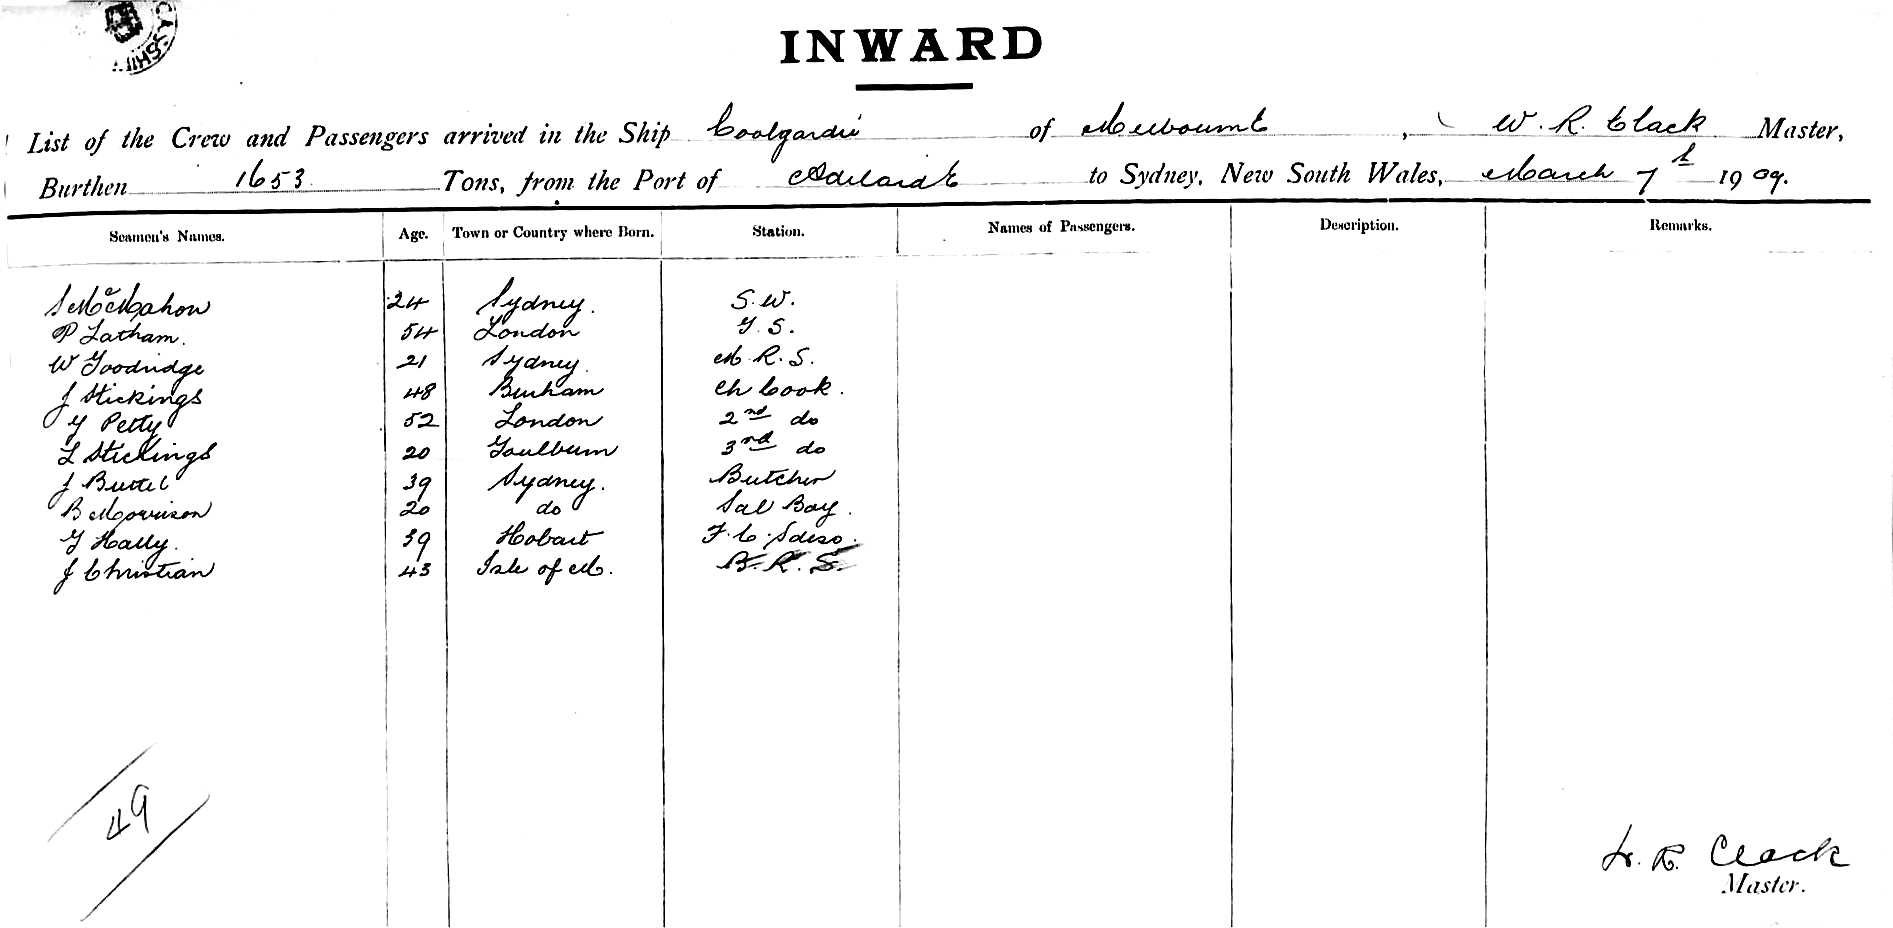 INWARD
List of the Crew and Passengers arrived in the Ship Coolgardie of Melbourne, W. R. Clack Master,
Burthen 1653 Tons, from the Port of Adelaide to Sydney, New South Wales, March 7th 1909.
Seamen's Names. Age. Town or Country where Born. Station. Names of Passengers. Description. Remarks.
S McMahon 24 Sydney. S.W.
P Latham. 54 London G. S.
W Goodridge 21 Sydney. M. R. S.
J Stickings 48 Burham Ch Cook.
G Petty 52 London 2nd do
L Stickings 20 Goulburn 3rd do
J 39 Sydney. Butcher
B Morrison 20 do Sal Boy.
G Hally. 39 Hobart F. C.
J Christian 43 Isle of M. B. R. S.
49
W. R. Clack
Master.